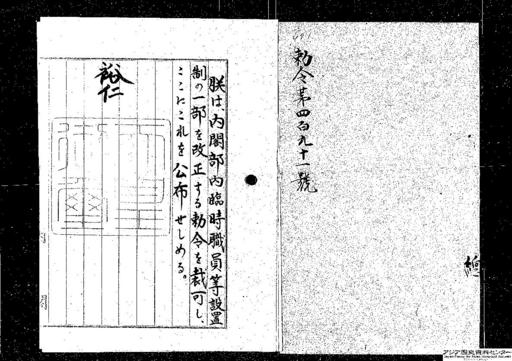 勅令第四百九十一號
朕は、内閣部内臨時職員等設置
制の一部を改正する勅令を裁可し、
ここにこれを公布せしめる。
裕仁
アジア歴史資料センター